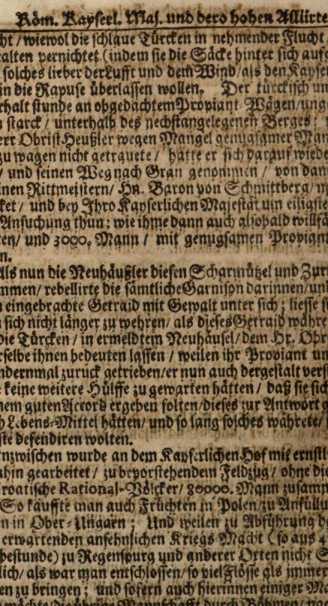 Röm. Kayserl. Maj. und dero hohen Alliirte
ht / wiewol die schlaue Türcken in nehmender Flucht
alten vernichtet (indem sie die Säcke hinter sich auf
solches lieber der Lufft und dem Wind / als den Kayse
in die Rapuse überlassen wollen. Der türckisch un
rhalt stunde an obgedachtem Proviant-Wägen / ung
n starck / unterhalb des nechstangelegenen Berges;
err Obrist Heußler wegen Mangel genugsamer Man
zu wagen nicht getrauete / hätte er sich darauf wiede
/ und seinen Weg nach Gran genommen / von dan
inen Rittmeistern / Hn. Baron von Schmittberg /
ket / und bey Ihro Kayserlichen Majestät um eiligste
Ansuchung thun; wie ihme dann auch alsobald willfä
ten / und 3000. Mann / mit genugsamen Provian
n.
Als nun die Neuhäußler diesen Scharmützel und Zur
mmen / rebellirte die sämtliche Garnison darinnen / un
eingebrachte Getraid mit Gewalt unter sich; liesse
sich nicht länger zu wehren / als dieses Getraid währe
die Türcken / in ermeldtem Neuhäusel / dem Hr. Obr
selbe ihnen bedeuten lassen / weilen ihr Proviant un
ndernmal zurück getrieben / er nun auch dergestalt vers
keine weitere Hülffe zu gewarten hätten / daß sie sich
nem guten Accord ergeben solten / dieses zur Antwort
ch Lebens-Mittel hätten / und so lang solches währete /
ste defendiren wolten.
nzwischen wurde an dem Kayserlichen Hof mit ernstl
ahin gearbeitet / zu bevorstehendem Feldzug / ohne die
roatische Rational-Völcker / 80000. Mann zusamm
So kauffte man auch Früchten in Polen / zu Anfüllu
n in Ober-Ungarn; Und weilen zu Abführung
erwartenden ansehnlichen Kriegs-Macht (so aus 4
bestunde) zu Regenspurg und anderer Orten nicht
lich / als war man entschlossen / so viel Flösse als immer
en zu bringen; und sofern auch hierinnen einiger M